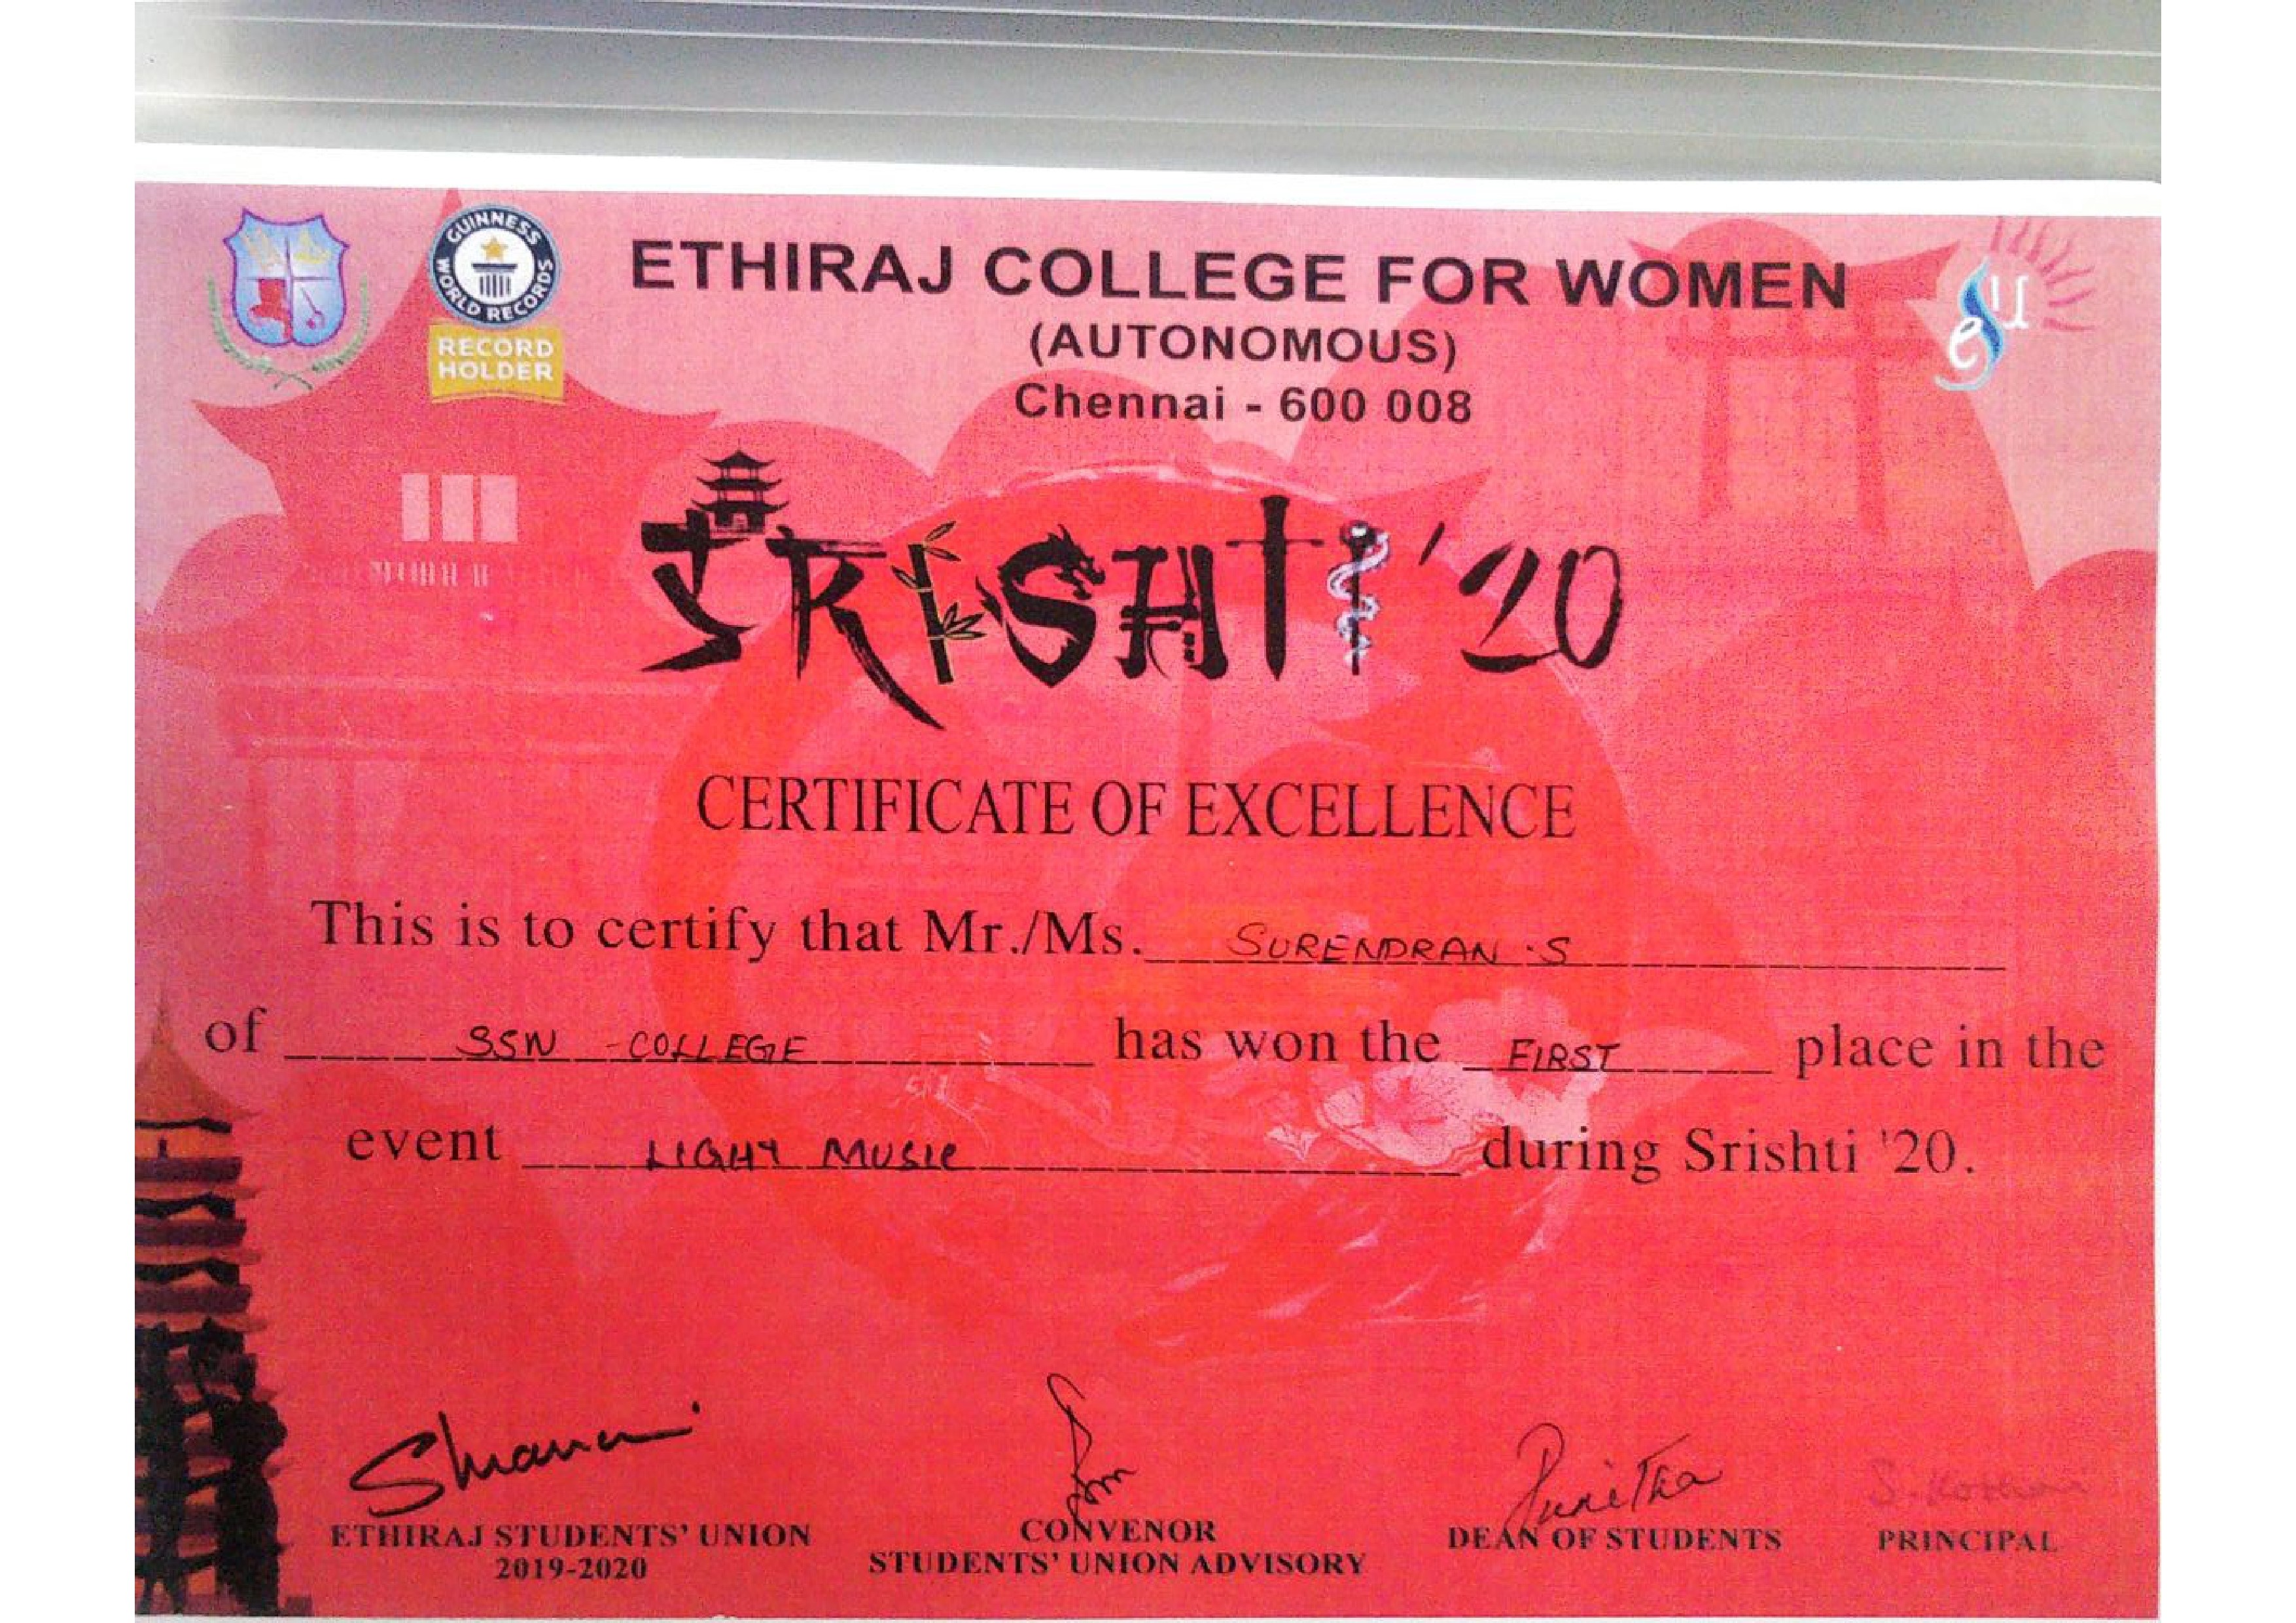 GUINNESS WORLD RECORDS
RECORD
HOLDER
ETHIRAJ COLLEGE FOR WOMEN
(AUTONOMOUS)
Chennai - 600 008
eSU
SRISHTI '20
CERTIFICATE OF EXCELLENCE
This is to certify that Mr./Ms. SURENDRAN .S
of SSN - COLLEGE has won the FIRST place in the
event LIGHT MUSIC during Srishti '20.
Punitha
ETHIRAJ STUDENTS' UNION
2019-2020
CONVENOR
STUDENTS' UNION ADVISORY
DEAN OF STUDENTS
PRINCIPAL